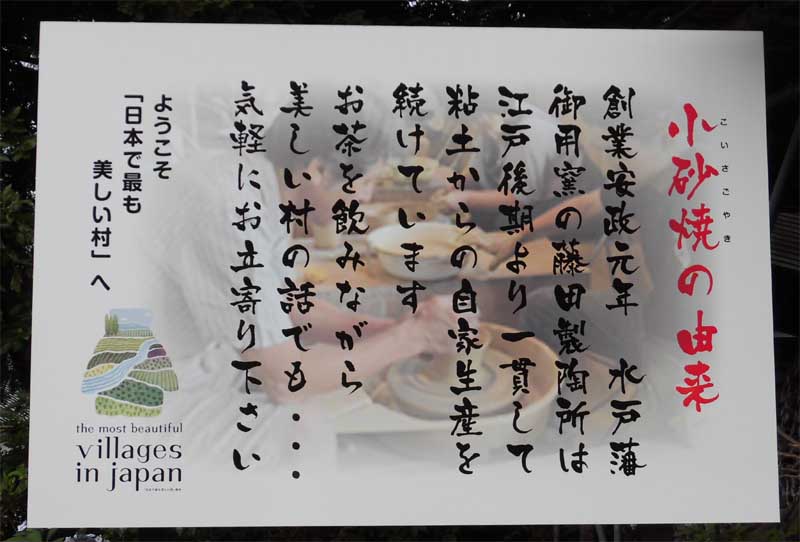 小砂焼の由来
こいさごやき
創業安政元年 水戸藩
御用窯の藤田製陶所は
江戸後期より一貫して
粘土からの自家生産を
続けています
お茶を飲みながら
美しい村の話でも・・・
気軽にお立寄り下さい
ようこそ
「日本で最も
美しい村」へ
the most beautiful
villages
in japan